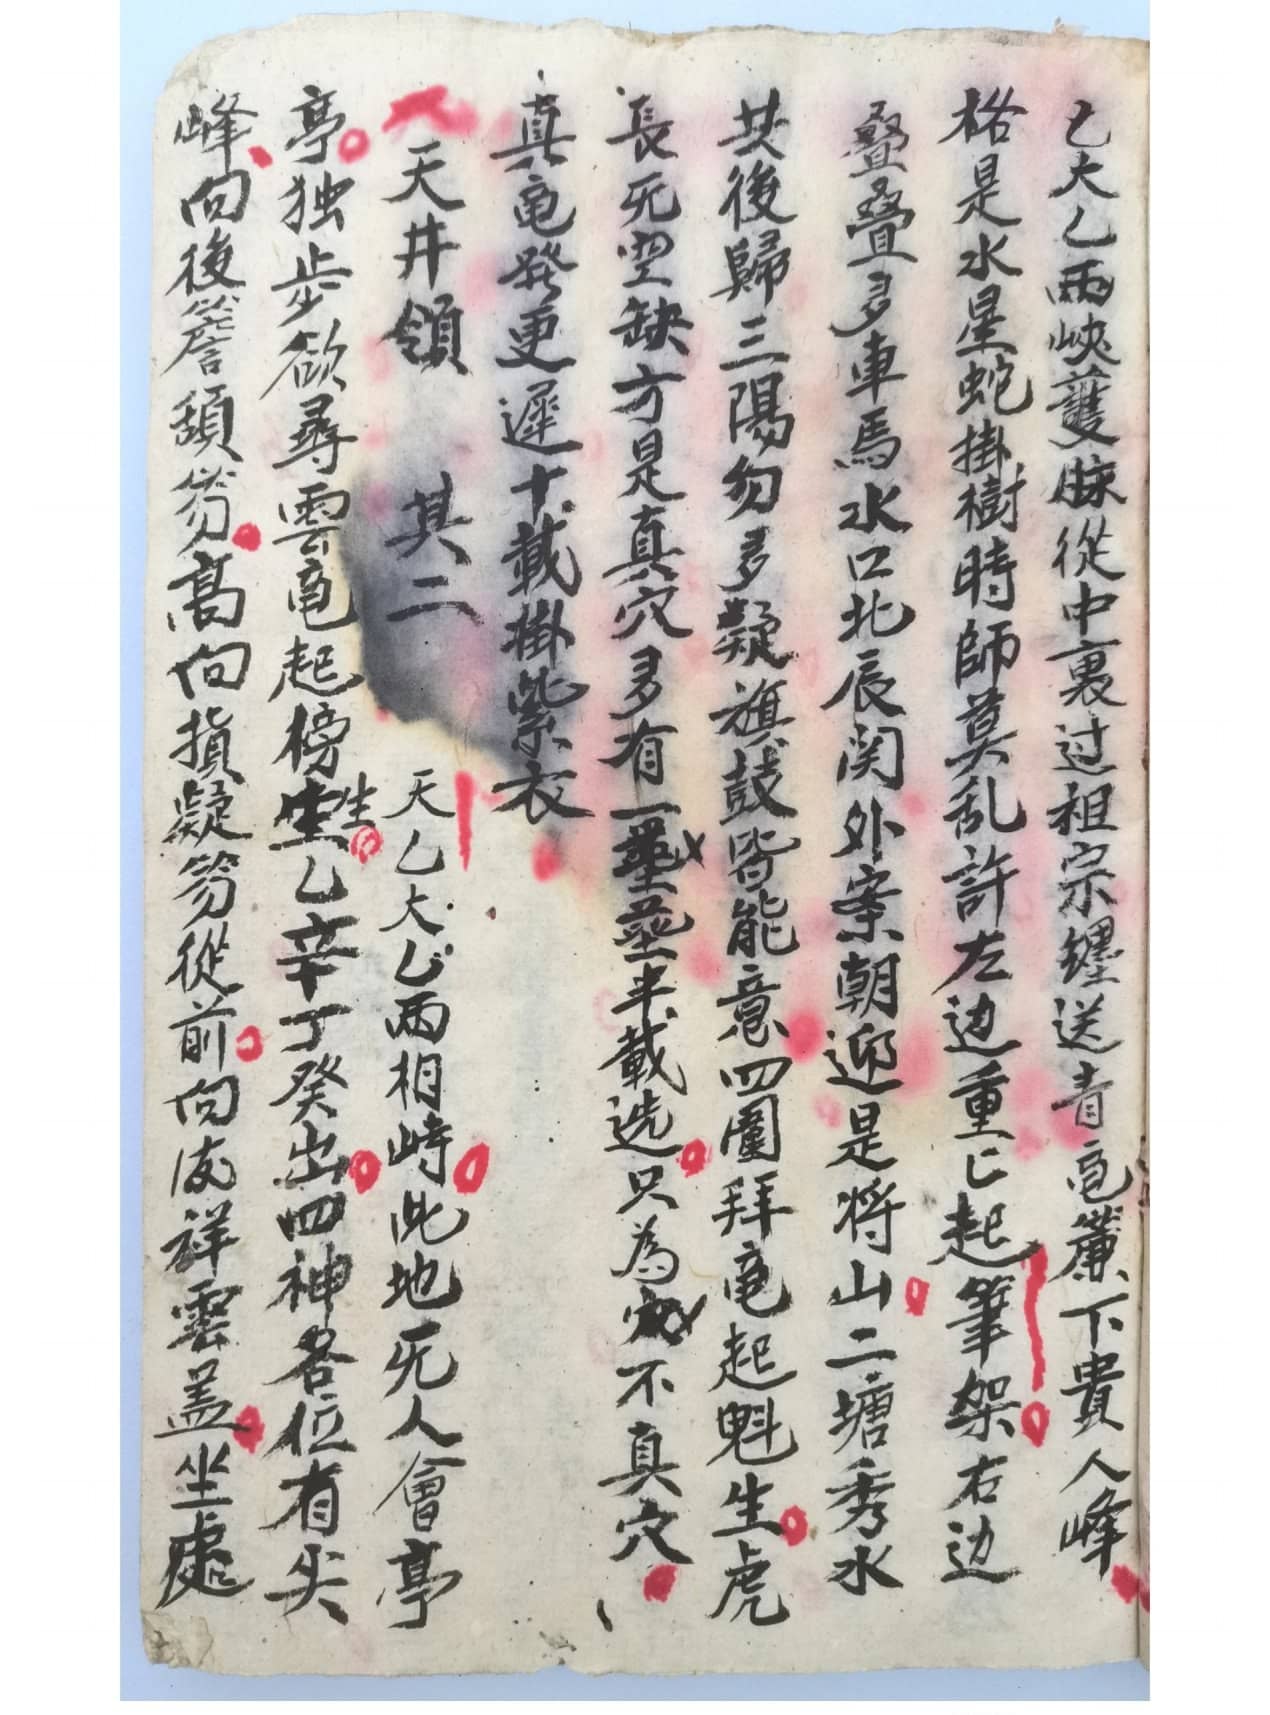 乙大乙兩峽護脉從中裏过祖宗纏送青竜簾下貴人峰
格是水星蛇掛樹時師莫乱許左边重匕起筆架右边
疊疊多車馬水口北辰関外案朝迎是将山二塘秀水
共後歸三陽勿多疑旗鼓皆能意四圍拜竜起魁生虎
長死空缺方是真穴多有一塟塟半載选只為不真穴
真竜發更遲十載掛紫衣
天井領 其二
天乙大乙兩相峙此地死人會亭
亭独步欲尋雲竜起榜生乙辛丁癸出四神各位有尖
峰向後簷頟笏高向損凝笏從前向友祥雲盖坐處